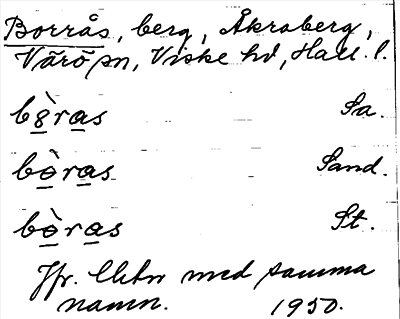 Borrås, berg, Åkraberg,
Värö sn, Viske hd, Hall. l.
bòras Sa.
bòras Sand.
bòras St.
Jfr. med samma
namn. 1950.